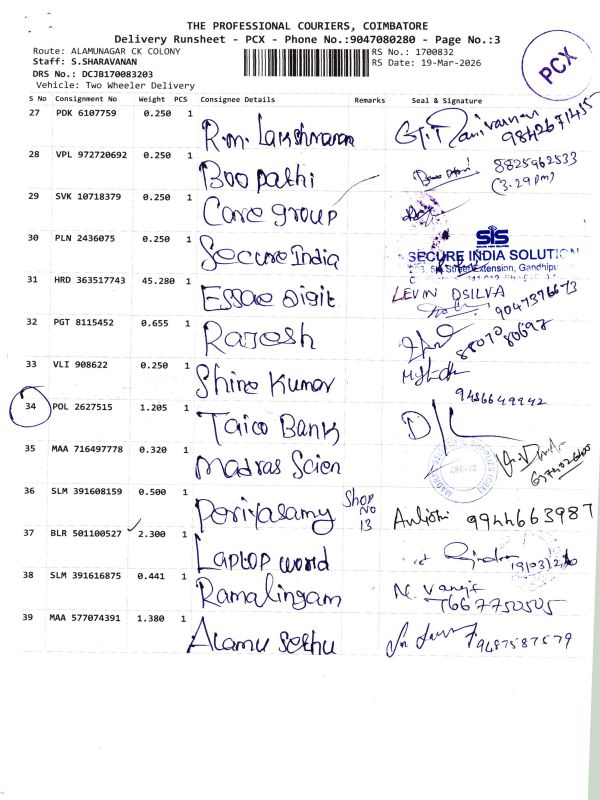 THE PROFESSIONAL COURIERS, COIMBATORE
Delivery Runsheet - PCX - Phone No.:9047080280 - Page No.:3
Route: ALAMUNAGAR CK COLONY
Staff: S.SHARAVANAN
DRS No.: DCJB170083203
Vehicle: Two Wheeler Delivery
RS No.: 1700832
RS Date: 19-Mar-2026
PCX
S No Consignment No Weight PCS Consignee Details Remarks Seal & Signature
27 PDK 6107759 0.250 1 R.m. Lakshmanan
28 VPL 972720692 0.250 1 Boopathi 8825962533
(3.29pm)
29 SVK 10718379 0.250 1 Care group
30 PLN 2436075 0.250 1 Secure India
SIS
SECURE INDIA SOLUTION
Street Extension, Gandhipu
31 HRD 363517743 45.280 1 Essae Digit LEVIN DSILVA
9047376673
32 PGT 8115452 0.655 1 Rajesh 8807080697
33 VLI 908622 0.250 1 Shine Kumar
9486649942
34 POL 2627515 1.205 1 Taico Bank
35 MAA 716497778 0.320 1 Madras Scien
36 SLM 391608159 0.500 1 Periyasamy Shop No 13 9944663987
37 BLR 501100527 2.300 1 Laptop world
38 SLM 391616875 0.441 1 Ramalingam
7667750505
39 MAA 577074391 1.380 1 Alamu Sethu 9487587579